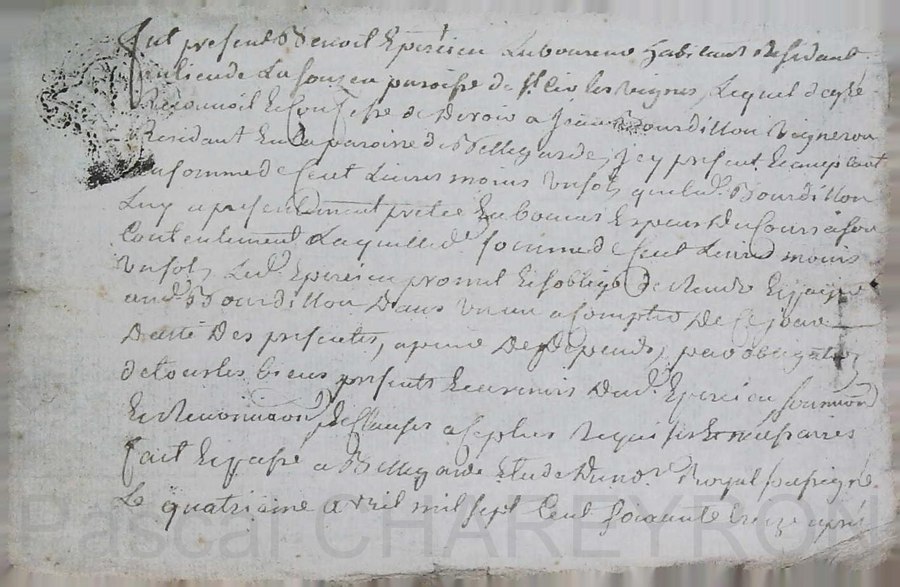 fut present Benoit Epercieu Laboureur habitant Residant
au lieu de La fouzeu paroisse de St Cir les vignes, Lequel de gré
Reconnoit Et Confesse de Devoir a Jean Bourdillon Vigneron
Residant En La paroisse de Bellegarde, Icy present Et acceptant
La somme de Cent Livres moins un sols que led. Bourdillon
Luy a presentement pretée En bonnes Especes du Cours a son
Contentement Laquelle de somme de Cent Livres moins
un sols Led. Epercieu promet Et s'oblige de Rendre Et payer
aud. Bourdillon Dans un an a Compter De Ce jour
Datte Des presentes, a peine De Depends, par obligation
de tous les biens presents Et avenirs Dud. Epercieu
Et Renonciaons, Et Clauses a Ce plus Requises Et necessaires
fait Et passé a Bellegarde Etude Du no.re Royal soussigné
Le quatrieme avril mil sept Cent soixante treize après
Pascal CHAREYRON